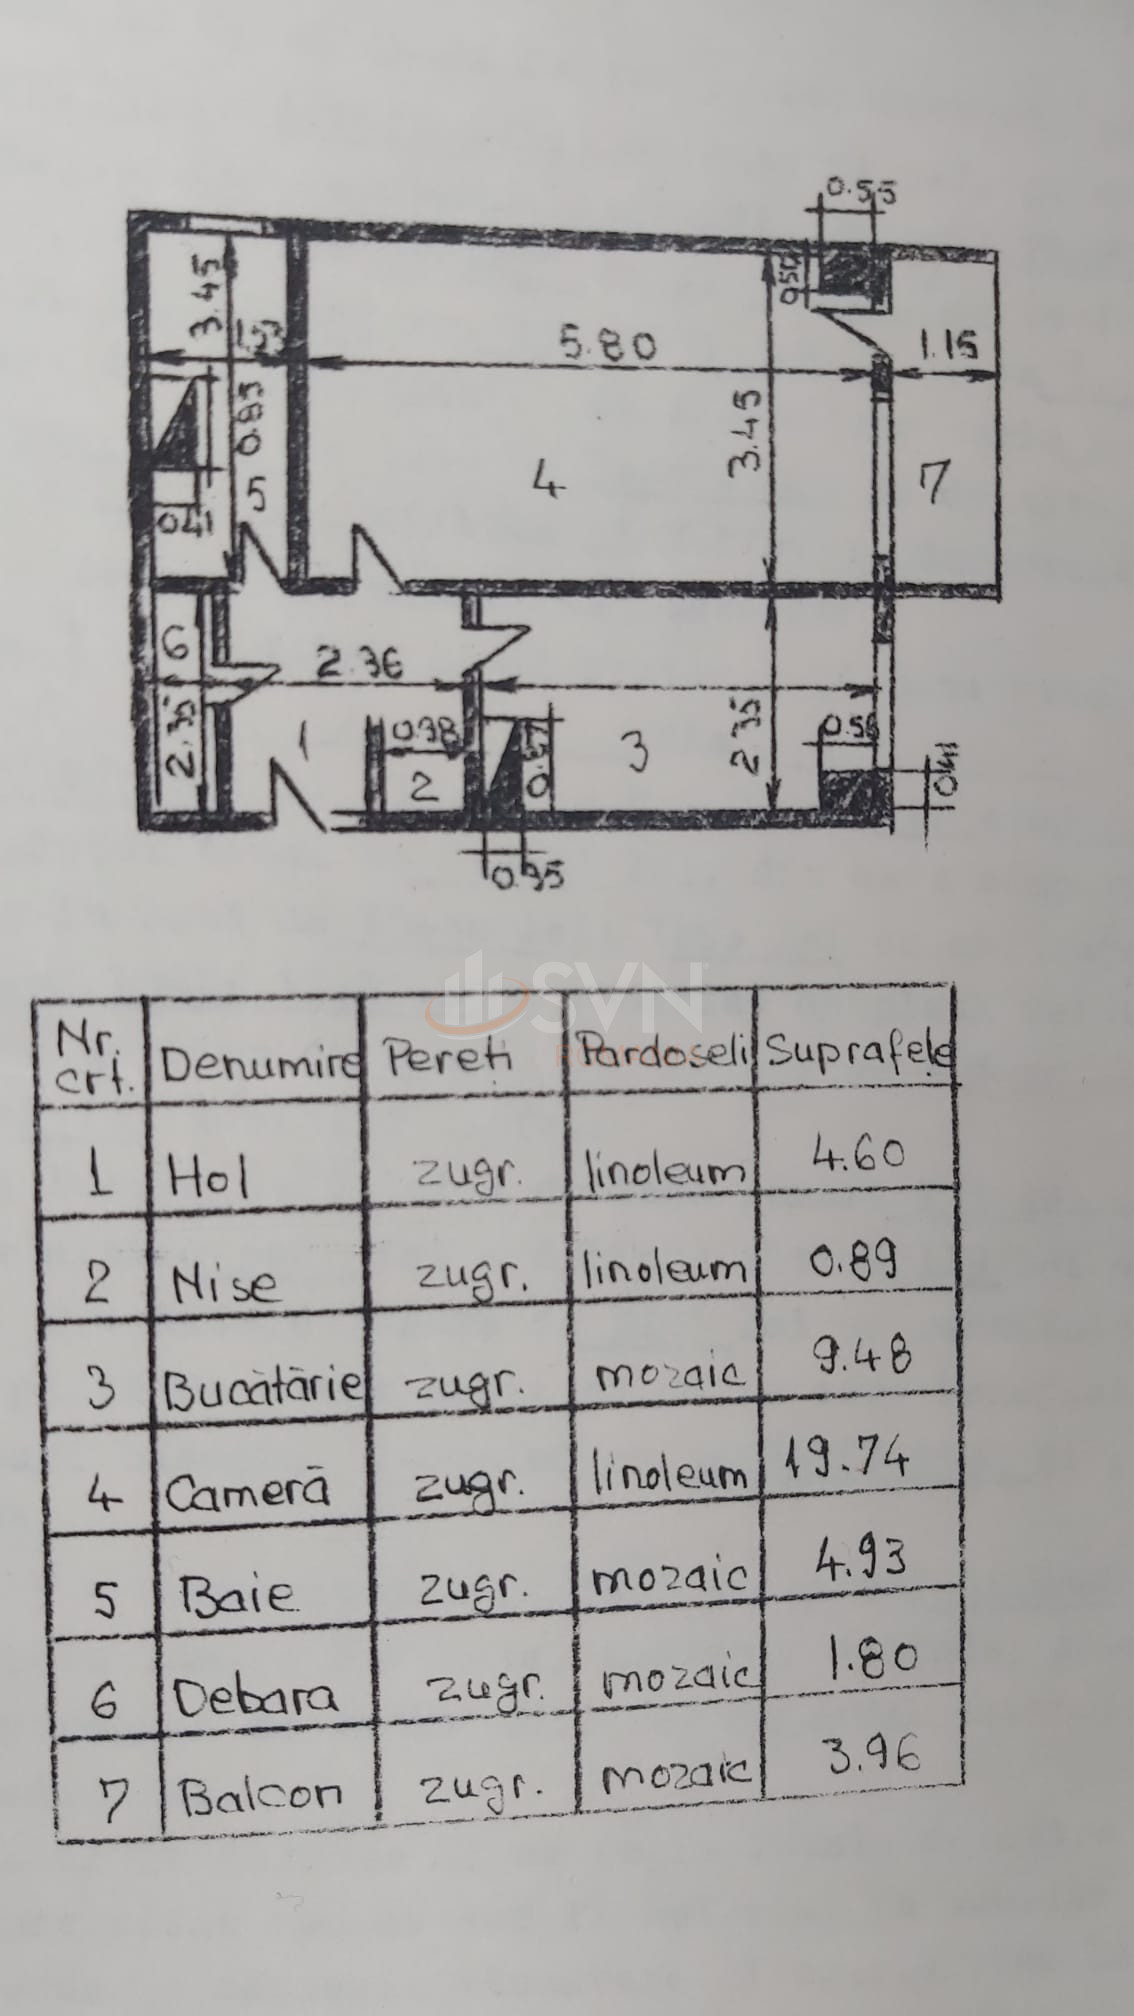 0.55
0.50
3.45
1.53
5.80
1.15
0.85
3.45
4
7
5
0.41
6
2.36
2.35
1
0.98
2
0.87
3
2.35
0.41
SVN
Nr. crt.
Denumire
Pereți
Pardoseli
Suprafețe
1 Hol zugr. linoleum 4.60
2 Nise zugr. linoleum 0.89
3 Bucătărie zugr. mozaic 9.48
4 Cameră zugr. linoleum 19.74
5 Baie zugr. mozaic 4.93
6 Debara zugr. mozaic 1.80
7 Balcon zugr. mozaic 3.96